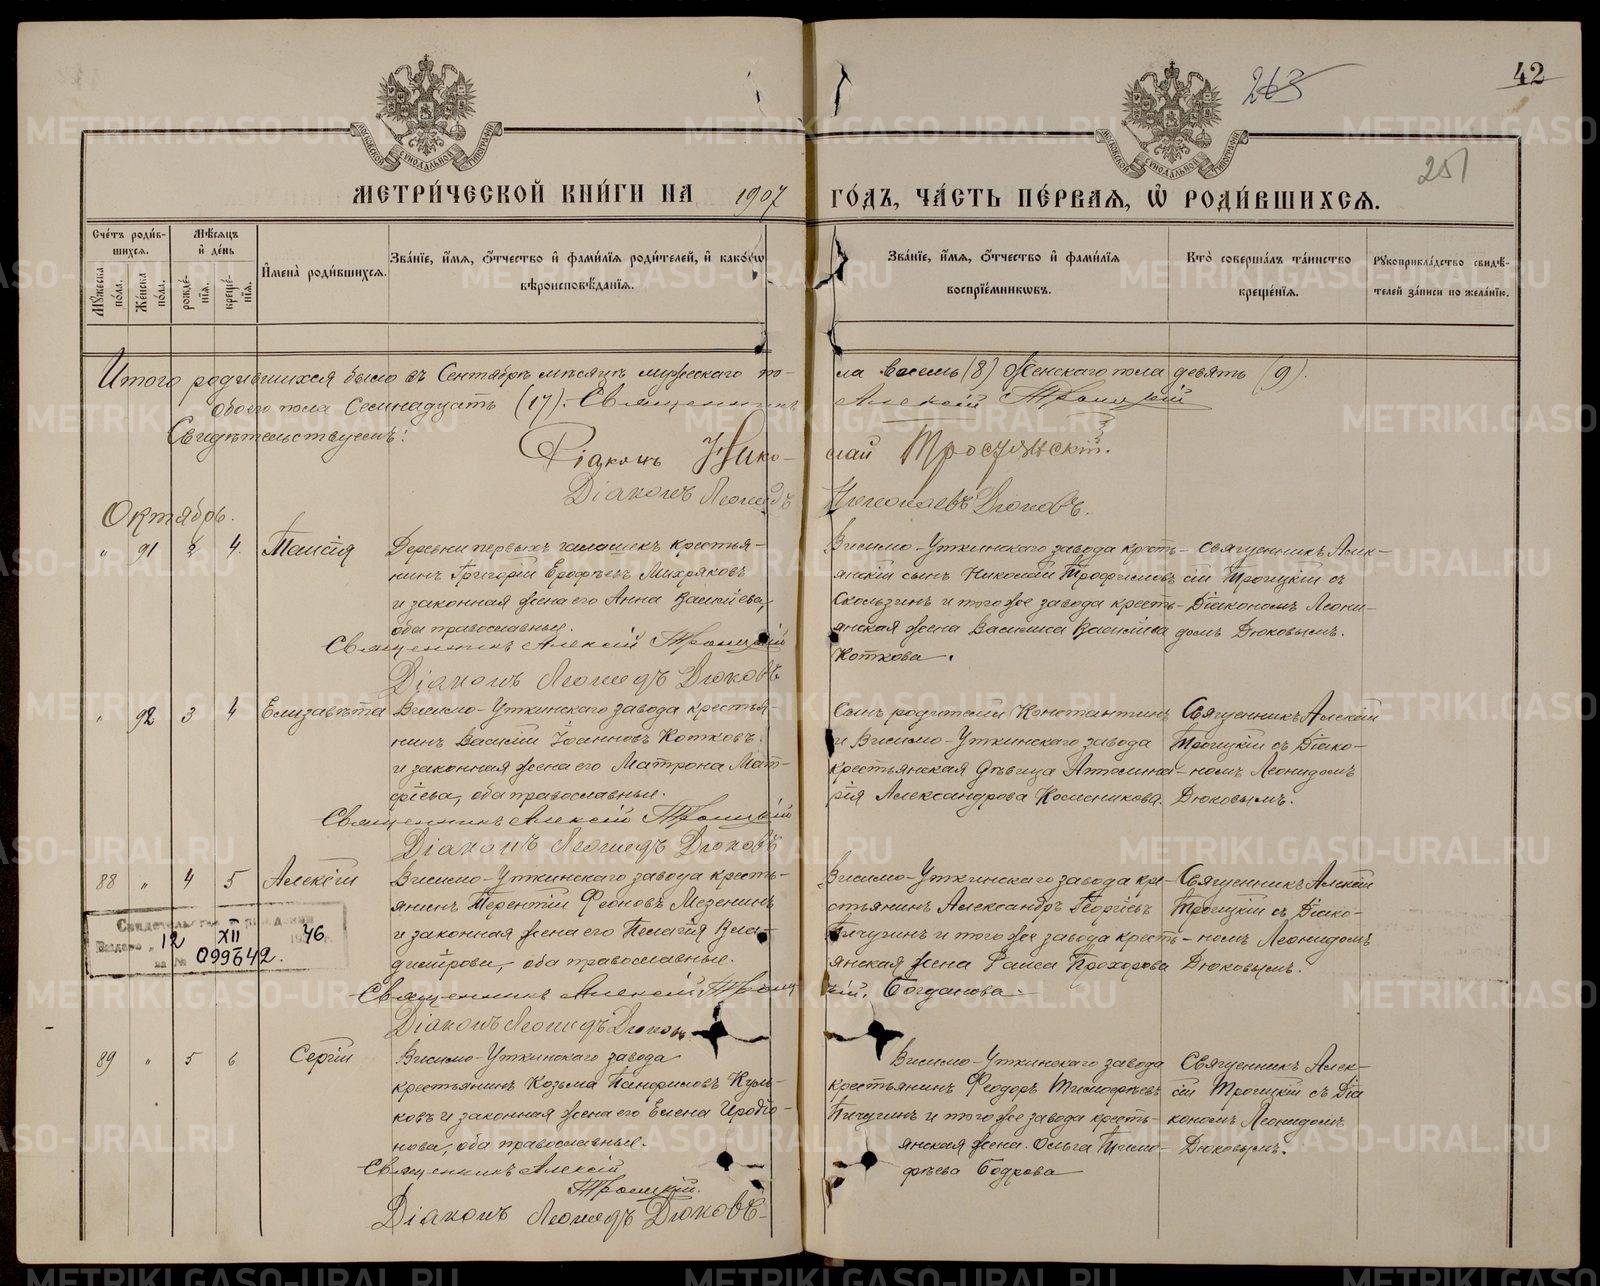 263
42
251
МЕТРИ́ЧЕСКОЙ КНИ́ГИ НА 1907 ГО́ДЪ, ЧА́СТЬ ПЕ́РВАЯ, Ѡ РОДИ́ВШИХСЯ.
Сче́тъ роди́вшихся.
Му́жеска по́ла.
Же́нска по́ла.
Мѣ́сяцъ и҆ де́нь
рожде́нїя.
креще́нїя.
И҆мена̀ роди́вшихся.
Зва́нїе, и҆́мя, ѻ҆́тчество и҆ фами́лїя роди́телей, и҆ како́гѡ
вѣроисповѣ́данїя.
Зва́нїе, и҆́мя, ѻ҆́тчество и҆ фами́лїя
воспрїе́мникѡвъ.
Кто̀ соверша́лъ та́инство
креще́нїя.
Рꙋкоприкла́дство свидѣ́-
телей за́писи по жела́нїю.
Итого родившихся было въ Сентябрѣ мѣсяцѣ мужескаго по-
ла восемь (8) Женскаго пола девять (9).
обоего пола Семнадцать (17). Священникъ Алексій Троицкій
Свидѣтельствуемъ:
Діаконъ Нико-
лай
Діаконъ Леонидъ Николаевъ Дюковъ.
Октябрь.
" 91 4. Таисія
Деревни первыхъ галашекъ крестья-
нинъ Григорій Ерофѣевъ Михряковъ
и законная жена его Анна
оба православные.
Священникъ Алексій Троицкій
Діаконъ Леонидъ Дюковъ
Висимо-Уткинскаго завода кресть-
янскій сынъ Николай Трофимовъ
Скользинъ и того же завода кресть-
янская жена Василиса
Коткова.
Священникъ Алек-
сій Троицкій съ
Діакономъ Леони-
домъ Дюковымъ.
" 92 3 4 Елизавѣта
Висимо-Уткинскаго завода крестья-
нинъ Василій Іоанновъ Котковъ
и законная жена его Матрона Мат-
фіева, оба православные.
Священникъ Алексій Троицкій
Діаконъ Леонидъ Дюковъ
Сынъ родителей Константинъ
и Висимо-Уткинскаго завода
крестьянская дѣвица Аполлина-
рія Александрова Колесникова.
Священникъ Алексій
Троицкій съ Діако-
номъ Леонидомъ
Дюковымъ.
88 " 4 5 Алексѣй
Висимо-Уткинскаго завода кресть-
янинъ Терентій Феоновъ Мезенинъ
и законная жена его Пелагія Вла-
димірова, оба православные.
Священникъ Алексій Троицкій.
Діаконъ Леонидъ Дюковъ
Висимо-Уткинскаго завода кре-
стьянинъ Александръ Георгіевъ
Пичугинъ и того же завода кресть-
янская жена Раиса Прохорова
Богданова.
Священникъ Алексій
Троицкій съ Діако-
номъ Леонидомъ
Дюковымъ.
Свидетельство
Выдано 12 XII 46
за № 099642.
89 " 5 6 Сергій
Висимо-Уткинскаго завода
крестьянинъ Козьма Панфиловъ Куль-
ковъ и законная жена его Елена Иродіо-
нова, оба православные.
Священникъ Алексій
Троицкій.
Діаконъ Леонидъ Дюковъ
Висимо-Уткинскаго завода
крестьянинъ Феодоръ Тимофѣевъ
Пичугинъ и того же завода кресть-
янская жена Ольга Тимо-
фѣева Бодрова
Священникъ Алек-
сій Троицкій съ Діа
кономъ Леонидомъ
Дюковымъ.
METRIKI.GASO-URAL.RU